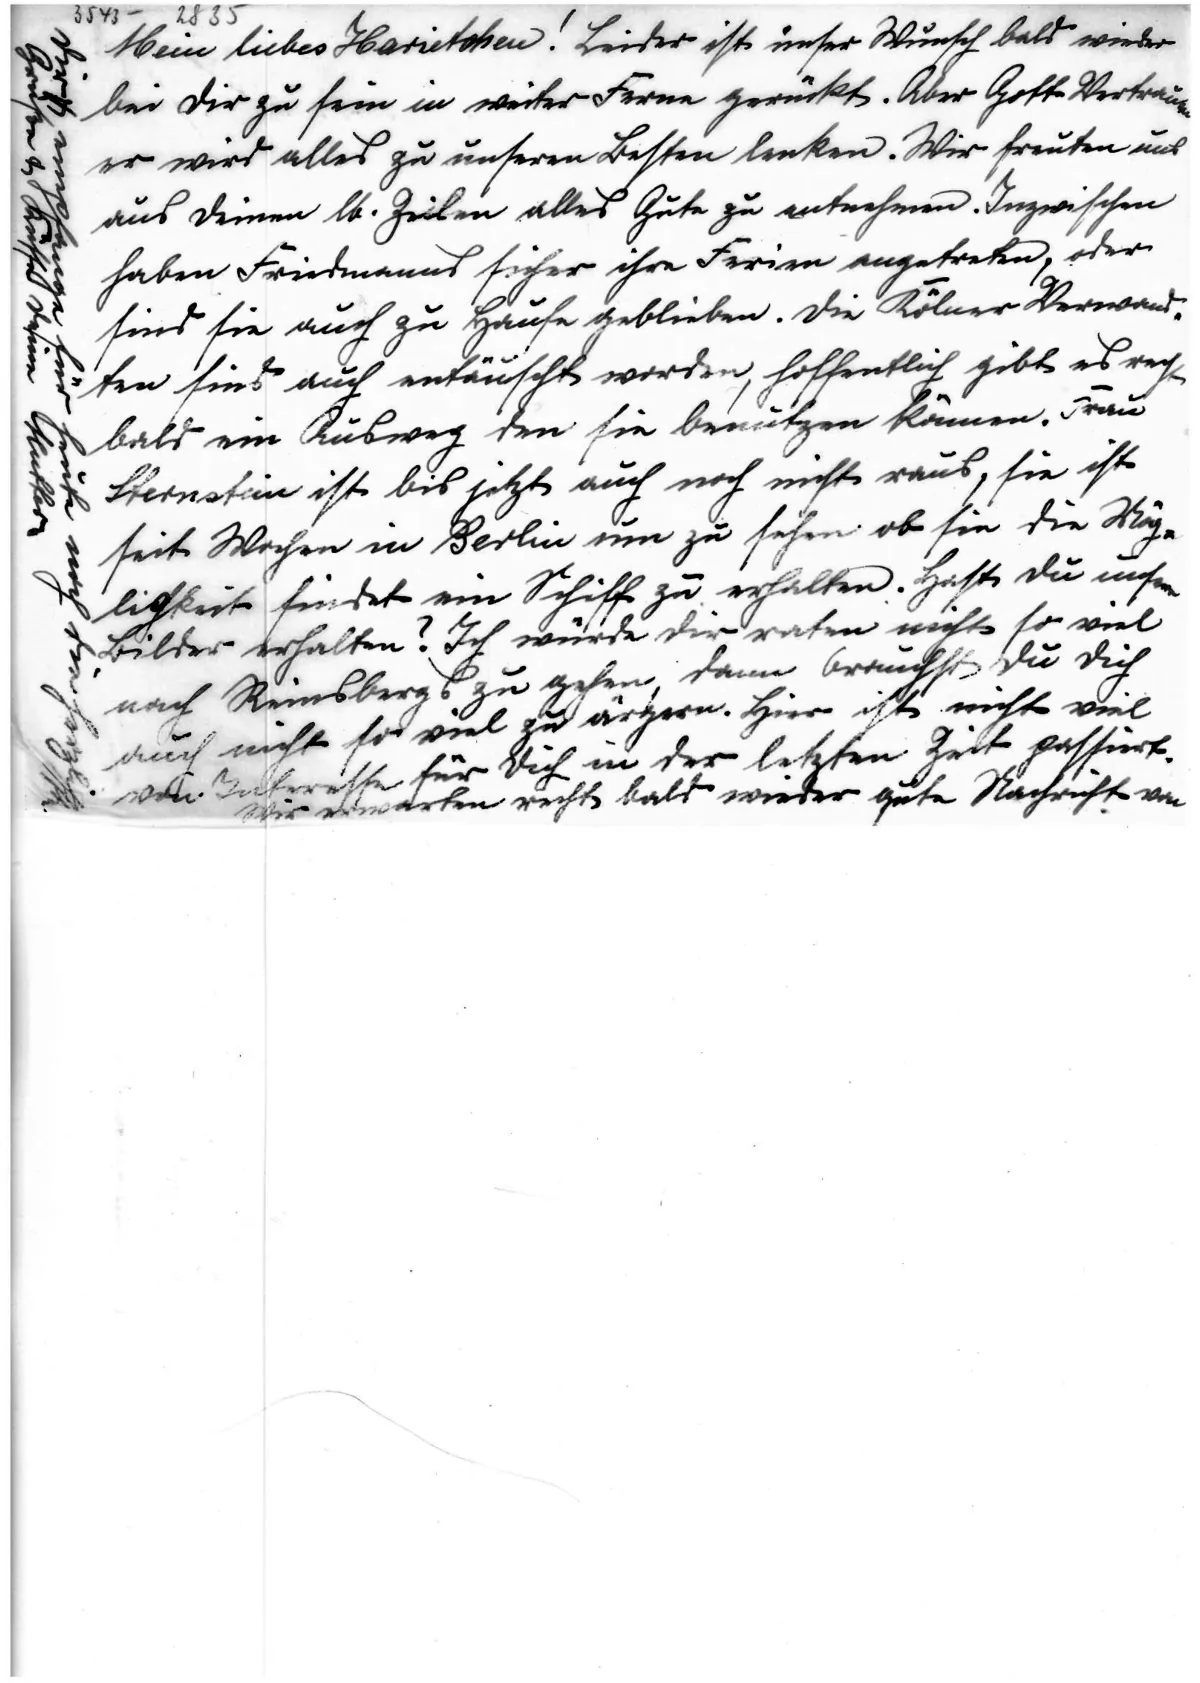 3543- 2835
Mein liebes Harietchen! Leider ist unser Wunsch bald wieder
bei Dir zu sein in weiter Ferne gerückt. Aber Gott Vertrauen
er wird alles zu unseren Besten lenken. Wir freuten uns
aus Deinen lb. Zeilen alles Gute zu entnehmen. Inzwischen
haben Friedmanns sicher ihre Ferien angetreten, oder
sind sie auch zu Hause geblieben. Die Kölner Verwand-
ten sind auch entäuscht worden, hoffentlich gibt es recht
bald ein Ausweg den sie benützen können. Frau
Sternstein ist bis jetzt auch noch nicht raus, sie ist
seit Wochen in Berlin um zu sehen ob sie die Mög-
lichkeit findet ein Schiff zu erhalten. Hast Du unsere
Bilder erhalten? Ich würde Dir raten nicht so viel
nach Reinsbergs zu gehen, dann brauchst Du Dich
auch nicht so viel zu ärgern. Hier ist nicht viel
von Interesse für Dich in der letzten Zeit passiert.
Wir erwarten recht bald wieder gute Nachricht von
Dir & empfange für heute noch die herzl.
Grüße & Küsse Deine Mutter